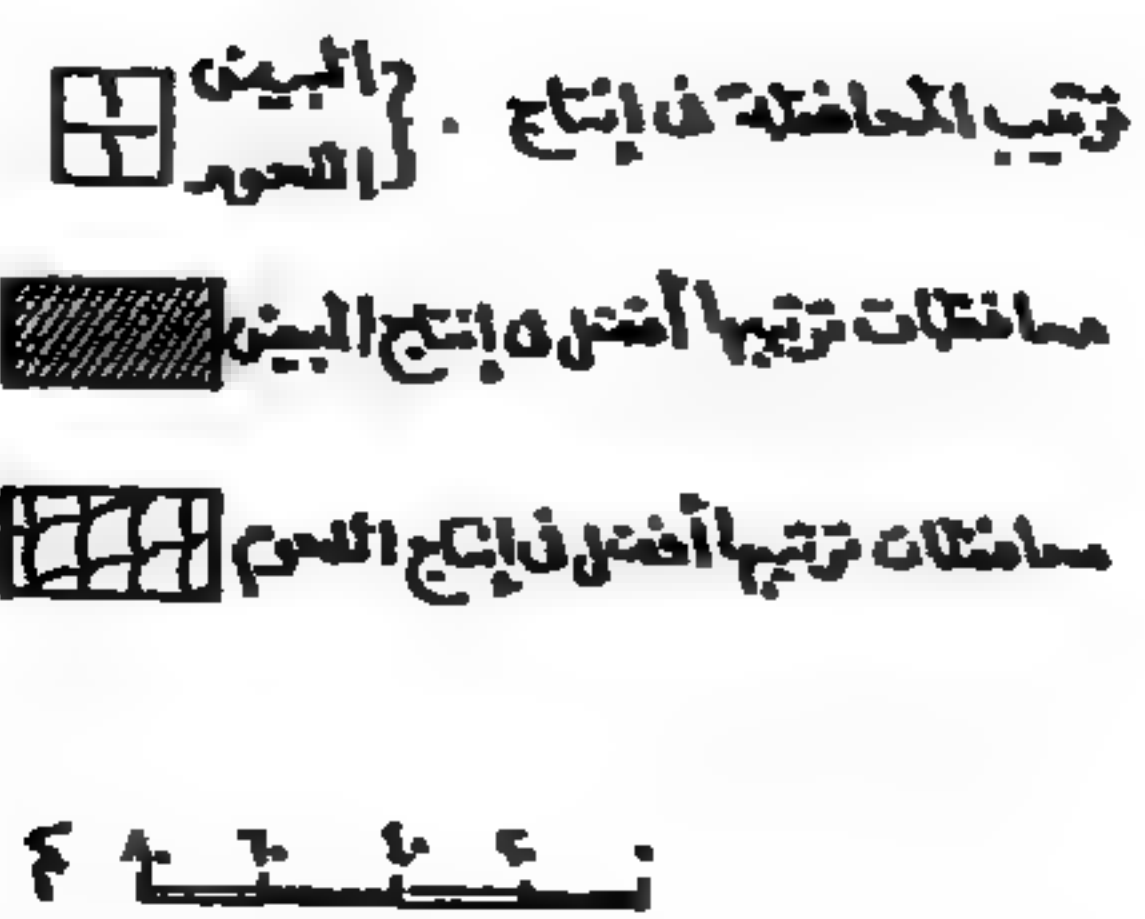 ترتيب المحافظة فى إنتاج
البيض
اللحوم
محافظات ترتيبها أفضل فى إنتاج البيض
محافظات ترتيبها أفضل فى إنتاج اللحوم
٠ ٢٠ ٤٠ ٦٠ ٨٠